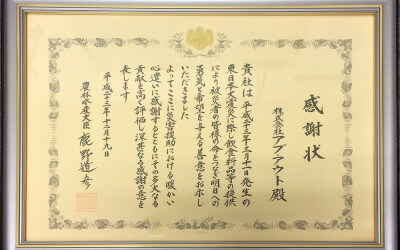 感謝状
株式会社アブアウト殿
貴社は平成二十三年三月十一日発生の
東日本大震災に際し飲食料品等の提供
により被災者の皆様の命をつなぎ明日への
勇気と希望を与える善意をお示し
いただきました
よってここに災害援助における暖かい
心遣いに感謝するとともにその多大なる
貢献を高く評価し深甚なる感謝の意を
表します
平成二十三年十二月十九日
農林水産大臣 鹿野道彦